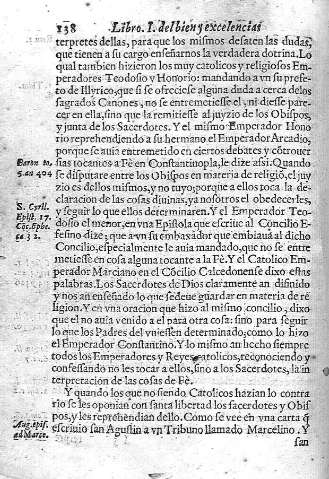 138 Libro. I. del bien y excelencias
terpretes dellas, para que los mismos desaten las dudas,
que tienen a su cargo enseñarnos la verdadera dotrina. Lo
qual tambien hizieron los muy catolicos y religiosos Em-
peradores Teodosio y Honorio: mandando a vn su prefe-
to de Illyrico, que si se ofreciese alguna duda a cerca de los
sagrados Canones, no se entremetiesse el, ni diesse pare-
cer en ella, sino que la remitiesse al juyzio de los Obispos,
y junta de los Sacerdotes. Y el mismo Emperador Hono
rio reprehendiendo a su hermano el Emperador Arcadio,
porque se auia entremetido en ciertos debates y cótrouer
Baron to,
sias tocantes a Fè en Constantinopla, le dize assi. Quando
5. an 404
se disputare entre los Obispos en materia de religió, el juy
zio es dellos mismos, y no tuyo; porque a ellos toca la de-
claracion de las cosas diuinas, y a nosotros el obedecerles,
S. Cyrll.
y seguir lo que ellos determinaren. Y el Emperador Teo-
Epist. 17.
dosio el menor, en vna Epistola que escriue al Concilio E-
Côc. Ephe.
fesino dize: que a vn su embaxador que embiaua al dicho
Concilio, especialmente le auia mandado, que no se entre
metiesse en cosa alguna tocante a la Fè. Y el Catolico Em-
perador Marciano en el Cócilio Calcedonense dixo estas
palabras. Los Sacerdotes de Dios claramente an difinido
y nos an enseñado lo que se deue guardar en materia de re
ligion. Y en vna oracion que hizo al mismo concilio, dixo
que el no auia venido a el para otra cosa: sino para seguir
lo que los Padres del vuiessen determinado, como lo hizo
el Emperador Constantino. Y lo mismo an hecho siempre
todos los Emperadores y Reyes catolicos, reconociendo y
confessando no les tocar a ellos, sino a los Sacerdotes, la in
terpretacion de las cosas de Fè.
Y quando los que no siendo Catolicos hazian lo contra
rio se les oponian con santa libertad los sacerdotes y Obis
pos, y les reprehendian dello. Como se vee en vna carta q̃
Aug. epis.
escriuio san Agustin a vn Tribuno llamado Marcelino. Y
ad Marce.
san